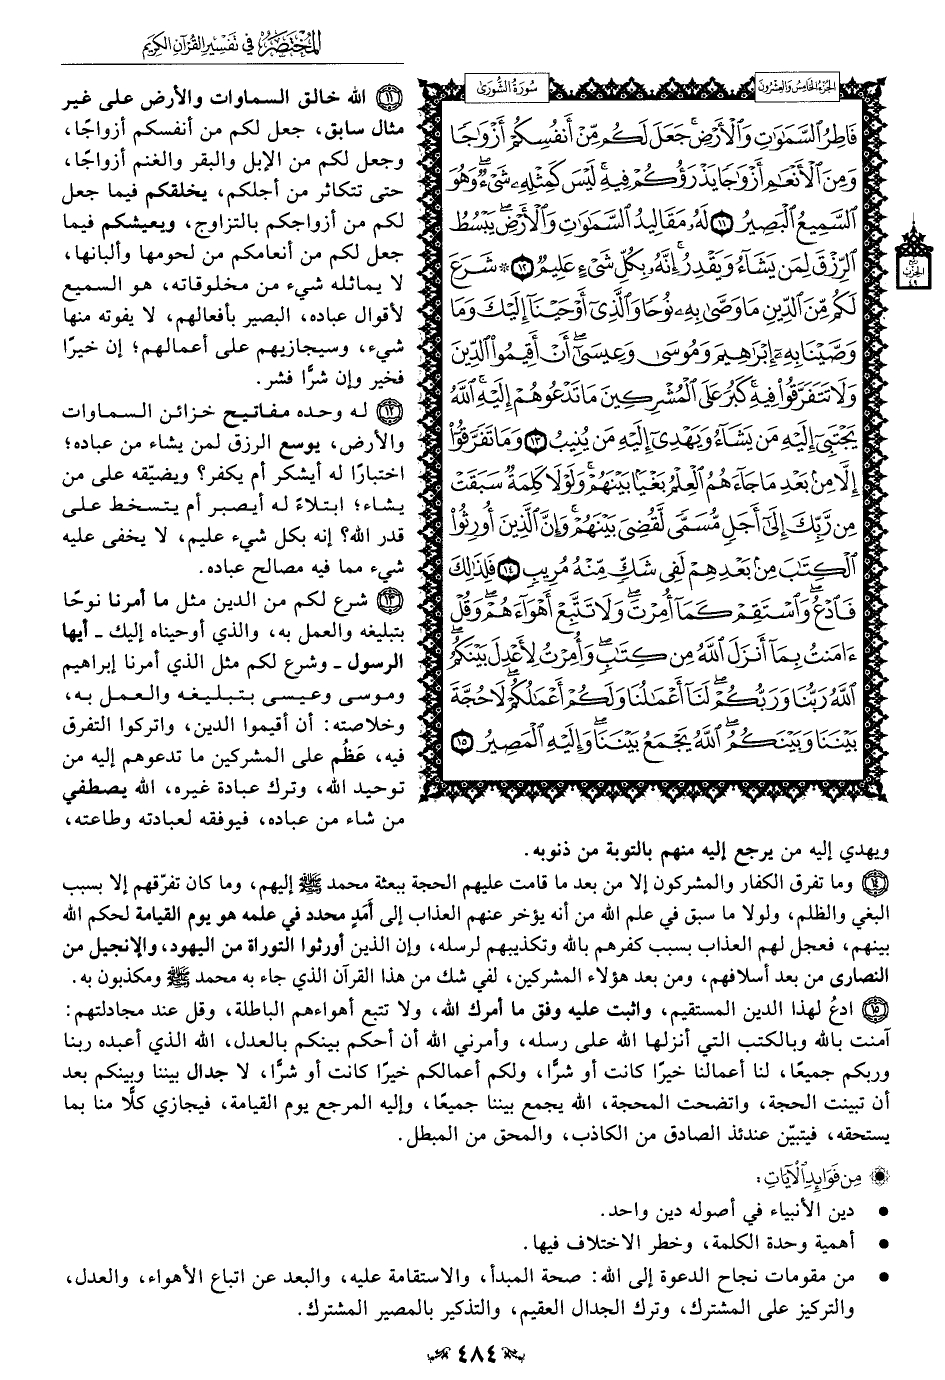 المختصر في تفسير القرآن الكريم
الجزء الخامس والعشرون
سورة الشورى
فَاطِرُ ٱلسَّمَٰوَٰتِ وَٱلْأَرْضِ ۚ جَعَلَ لَكُم مِّنْ أَنفُسِكُمْ أَزْوَٰجًا
وَمِنَ ٱلْأَنْعَٰمِ أَزْوَٰجًا يَذْرَؤُكُمْ فِيهِ ۚ لَيْسَ كَمِثْلِهِۦ شَىْءٌ ۖ وَهُوَ
ٱلسَّمِيعُ ٱلْبَصِيرُ ١١ لَهُۥ مَقَالِيدُ ٱلسَّمَٰوَٰتِ وَٱلْأَرْضِ ۖ يَبْسُطُ
ٱلرِّزْقَ لِمَن يَشَآءُ وَيَقْدِرُ ۚ إِنَّهُۥ بِكُلِّ شَىْءٍ عَلِيمٌ ١٢ ۞ شَرَعَ
لَكُم مِّنَ ٱلدِّينِ مَا وَصَّىٰ بِهِۦ نُوحًا وَٱلَّذِىٓ أَوْحَيْنَآ إِلَيْكَ وَمَا
وَصَّيْنَا بِهِۦٓ إِبْرَٰهِيمَ وَمُوسَىٰ وَعِيسَىٰٓ ۖ أَنْ أَقِيمُوا۟ ٱلدِّينَ
وَلَا تَتَفَرَّقُوا۟ فِيهِ ۚ كَبُرَ عَلَى ٱلْمُشْرِكِينَ مَا تَدْعُوهُمْ إِلَيْهِ ۚ ٱللَّهُ
يَجْتَبِىٓ إِلَيْهِ مَن يَشَآءُ وَيَهْدِىٓ إِلَيْهِ مَن يُنِيبُ ١٣ وَمَا تَفَرَّقُوٓا۟
إِلَّا مِنۢ بَعْدِ مَا جَآءَهُمُ ٱلْعِلْمُ بَغْيًۢا بَيْنَهُمْ ۚ وَلَوْلَا كَلِمَةٌ سَبَقَتْ
مِن رَّبِّكَ إِلَىٰٓ أَجَلٍ مُّسَمًّى لَّقُضِىَ بَيْنَهُمْ ۚ وَإِنَّ ٱلَّذِينَ أُورِثُوا۟
ٱلْكِتَٰبَ مِنۢ بَعْدِهِمْ لَفِى شَكٍّ مِّنْهُ مُرِيبٍ ١٤ فَلِذَٰلِكَ
فَٱدْعُ ۖ وَٱسْتَقِمْ كَمَآ أُمِرْتَ ۖ وَلَا تَتَّبِعْ أَهْوَآءَهُمْ ۖ وَقُلْ
ءَامَنتُ بِمَآ أَنزَلَ ٱللَّهُ مِن كِتَٰبٍ ۖ وَأُمِرْتُ لِأَعْدِلَ بَيْنَكُمُ ۖ
ٱللَّهُ رَبُّنَا وَرَبُّكُمْ ۖ لَنَآ أَعْمَٰلُنَا وَلَكُمْ أَعْمَٰلُكُمْ ۖ لَا حُجَّةَ
بَيْنَنَا وَبَيْنَكُمُ ۖ ٱللَّهُ يَجْمَعُ بَيْنَنَا ۖ وَإِلَيْهِ ٱلْمَصِيرُ ١٥
ربع
الحزب
٤٩
١١ الله خالق السماوات والأرض على غير
مثال سابق، جعل لكم من أنفسكم أزواجًا،
وجعل لكم من الإبل والبقر والغنم أزواجًا،
حتى تتكاثر من أجلكم، يخلقكم فيما جعل
لكم من أزواجكم بالتزاوج، ويعيشكم فيما
جعل لكم من أنعامكم من لحومها وألبانها،
لا يماثله شيء من مخلوقاته، هو السميع
لأقوال عباده، البصير بأفعالهم، لا يفوته منها
شيء، وسيجازيهم على أعمالهم؛ إن خيرًا
فخير وإن شرًّا فشر.
١٢ له وحده مفاتيح خزائن السماوات
والأرض، يوسع الرزق لمن يشاء من عباده؛
اختبارًا له أيشكر أم يكفر؟ ويضيّقه على من
يشاء؛ ابتلاءً له أيصبر أم يتسخط على
قدر الله؟ إنه بكل شيء عليم، لا يخفى عليه
شيء مما فيه مصالح عباده.
١٣ شرع لكم من الدين مثل ما أمرنا نوحًا
بتبليغه والعمل به، والذي أوحيناه إليك - أيها
الرسول - وشرع لكم مثل الذي أمرنا إبراهيم
وموسى وعيسى بتبليغه والعمل به،
وخلاصته: أن أقيموا الدين، واتركوا التفرق
فيه، عَظُم على المشركين ما تدعوهم إليه من
توحيد الله، وترك عبادة غيره، الله يصطفي
من شاء من عباده، فيوفقه لعبادته وطاعته،
ويهدي إليه من يرجع إليه منهم بالتوبة من ذنوبه.
١٤ وما تفرق الكفار والمشركون إلا من بعد ما قامت عليهم الحجة ببعثة محمد ﷺ إليهم، وما كان تفرّقهم إلا بسبب
البغي والظلم، ولولا ما سبق في علم الله من أنه يؤخر عنهم العذاب إلى أَمَدٍ محدد في علمه هو يوم القيامة لحكم الله
بينهم، فعجل لهم العذاب بسبب كفرهم بالله وتكذيبهم لرسله، وإن الذين أورثوا التوراة من اليهود، والإنجيل من
النصارى من بعد أسلافهم، ومن بعد هؤلاء المشركين، لفي شك من هذا القرآن الذي جاء به محمد ﷺ ومكذبون به.
١٥ ادعُ لهذا الدين المستقيم، واثبت عليه وفق ما أمرك الله، ولا تتبع أهواءهم الباطلة، وقل عند مجادلتهم:
آمنت بالله وبالكتب التي أنزلها الله على رسله، وأمرني الله أن أحكم بينكم بالعدل، الله الذي أعبده ربنا
وربكم جميعًا، لنا أعمالنا خيرًا كانت أو شرًّا، ولكم أعمالكم خيرًا كانت أو شرًّا، لا جدال بيننا وبينكم بعد
أن تبينت الحجة، واتضحت المحجة، الله يجمع بيننا جميعًا، وإليه المرجع يوم القيامة، فيجازي كلًّا منا بما
يستحقه، فيتبيّن عندئذ الصادق من الكاذب، والمحق من المبطل.
من فوائد الآيات:
• دين الأنبياء في أصوله دين واحد.
• أهمية وحدة الكلمة، وخطر الاختلاف فيها.
• من مقومات نجاح الدعوة إلى الله: صحة المبدأ، والاستقامة عليه، والبعد عن اتباع الأهواء، والعدل،
والتركيز على المشترك، وترك الجدال العقيم، والتذكير بالمصير المشترك.
٤٨٤